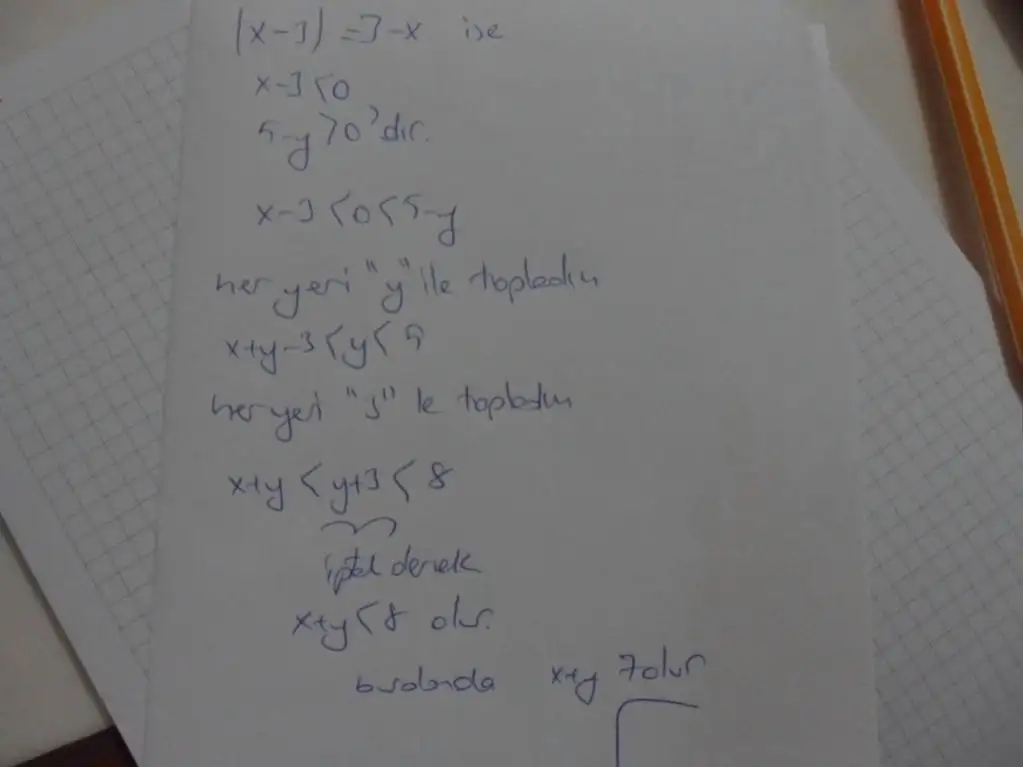 |x-3| = 3-x ise
x-3<0
5-y>0'dır.
x-3<0<5-y
her yeri "y" ile topladım
x+y-3<y<5
her yeri "3" le topladım
x+y<y+3<8
iptal demek
x+y<8 olur.
buradanda x+y 7 olur